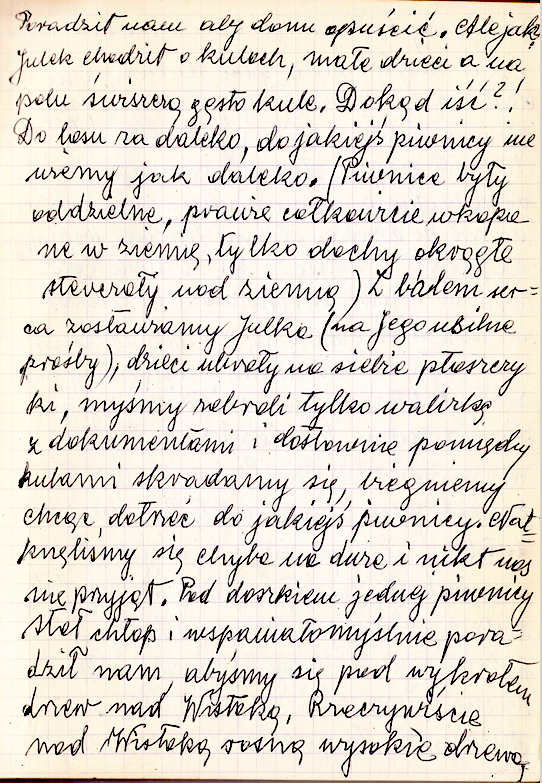 Poradził nam aby domu opuścić. Ale jak,
Julek chodził o kulach, małe dzieci a na
polu świszczą gęsto kule. Dokąd iść?!
Do lasu za daleko, do jakiejś piwnicy nie
wiemy jak daleko. (Piwnice były
oddzielne, prawie całkowicie wkopa
ne w ziemię, tylko dachy okrągłe
sterczały nad ziemią) Z bólem ser=
ca zostawiamy Julka (na Jego usilne
prośby), dzieci ubrały na siebie płaszczy
ki, myśmy zabrali tylko walizkę
z dokumentami i dosłownie pomiędzy
kulami skradamy się, biegniemy
chcąc dotrzeć do jakiejś piwnicy. Nat=
knęliśmy się chyba na dwie i nikt nas
nie przyjął. Pod daszkiem jednej piwnicy
stał chłop i wspaniałomyślnie pora=
dził nam, abyśmy się pod wykrotem
drzew nad Wisłoką, Rzeczywiście
nad Wisłoką rosną wysokie drzewa,